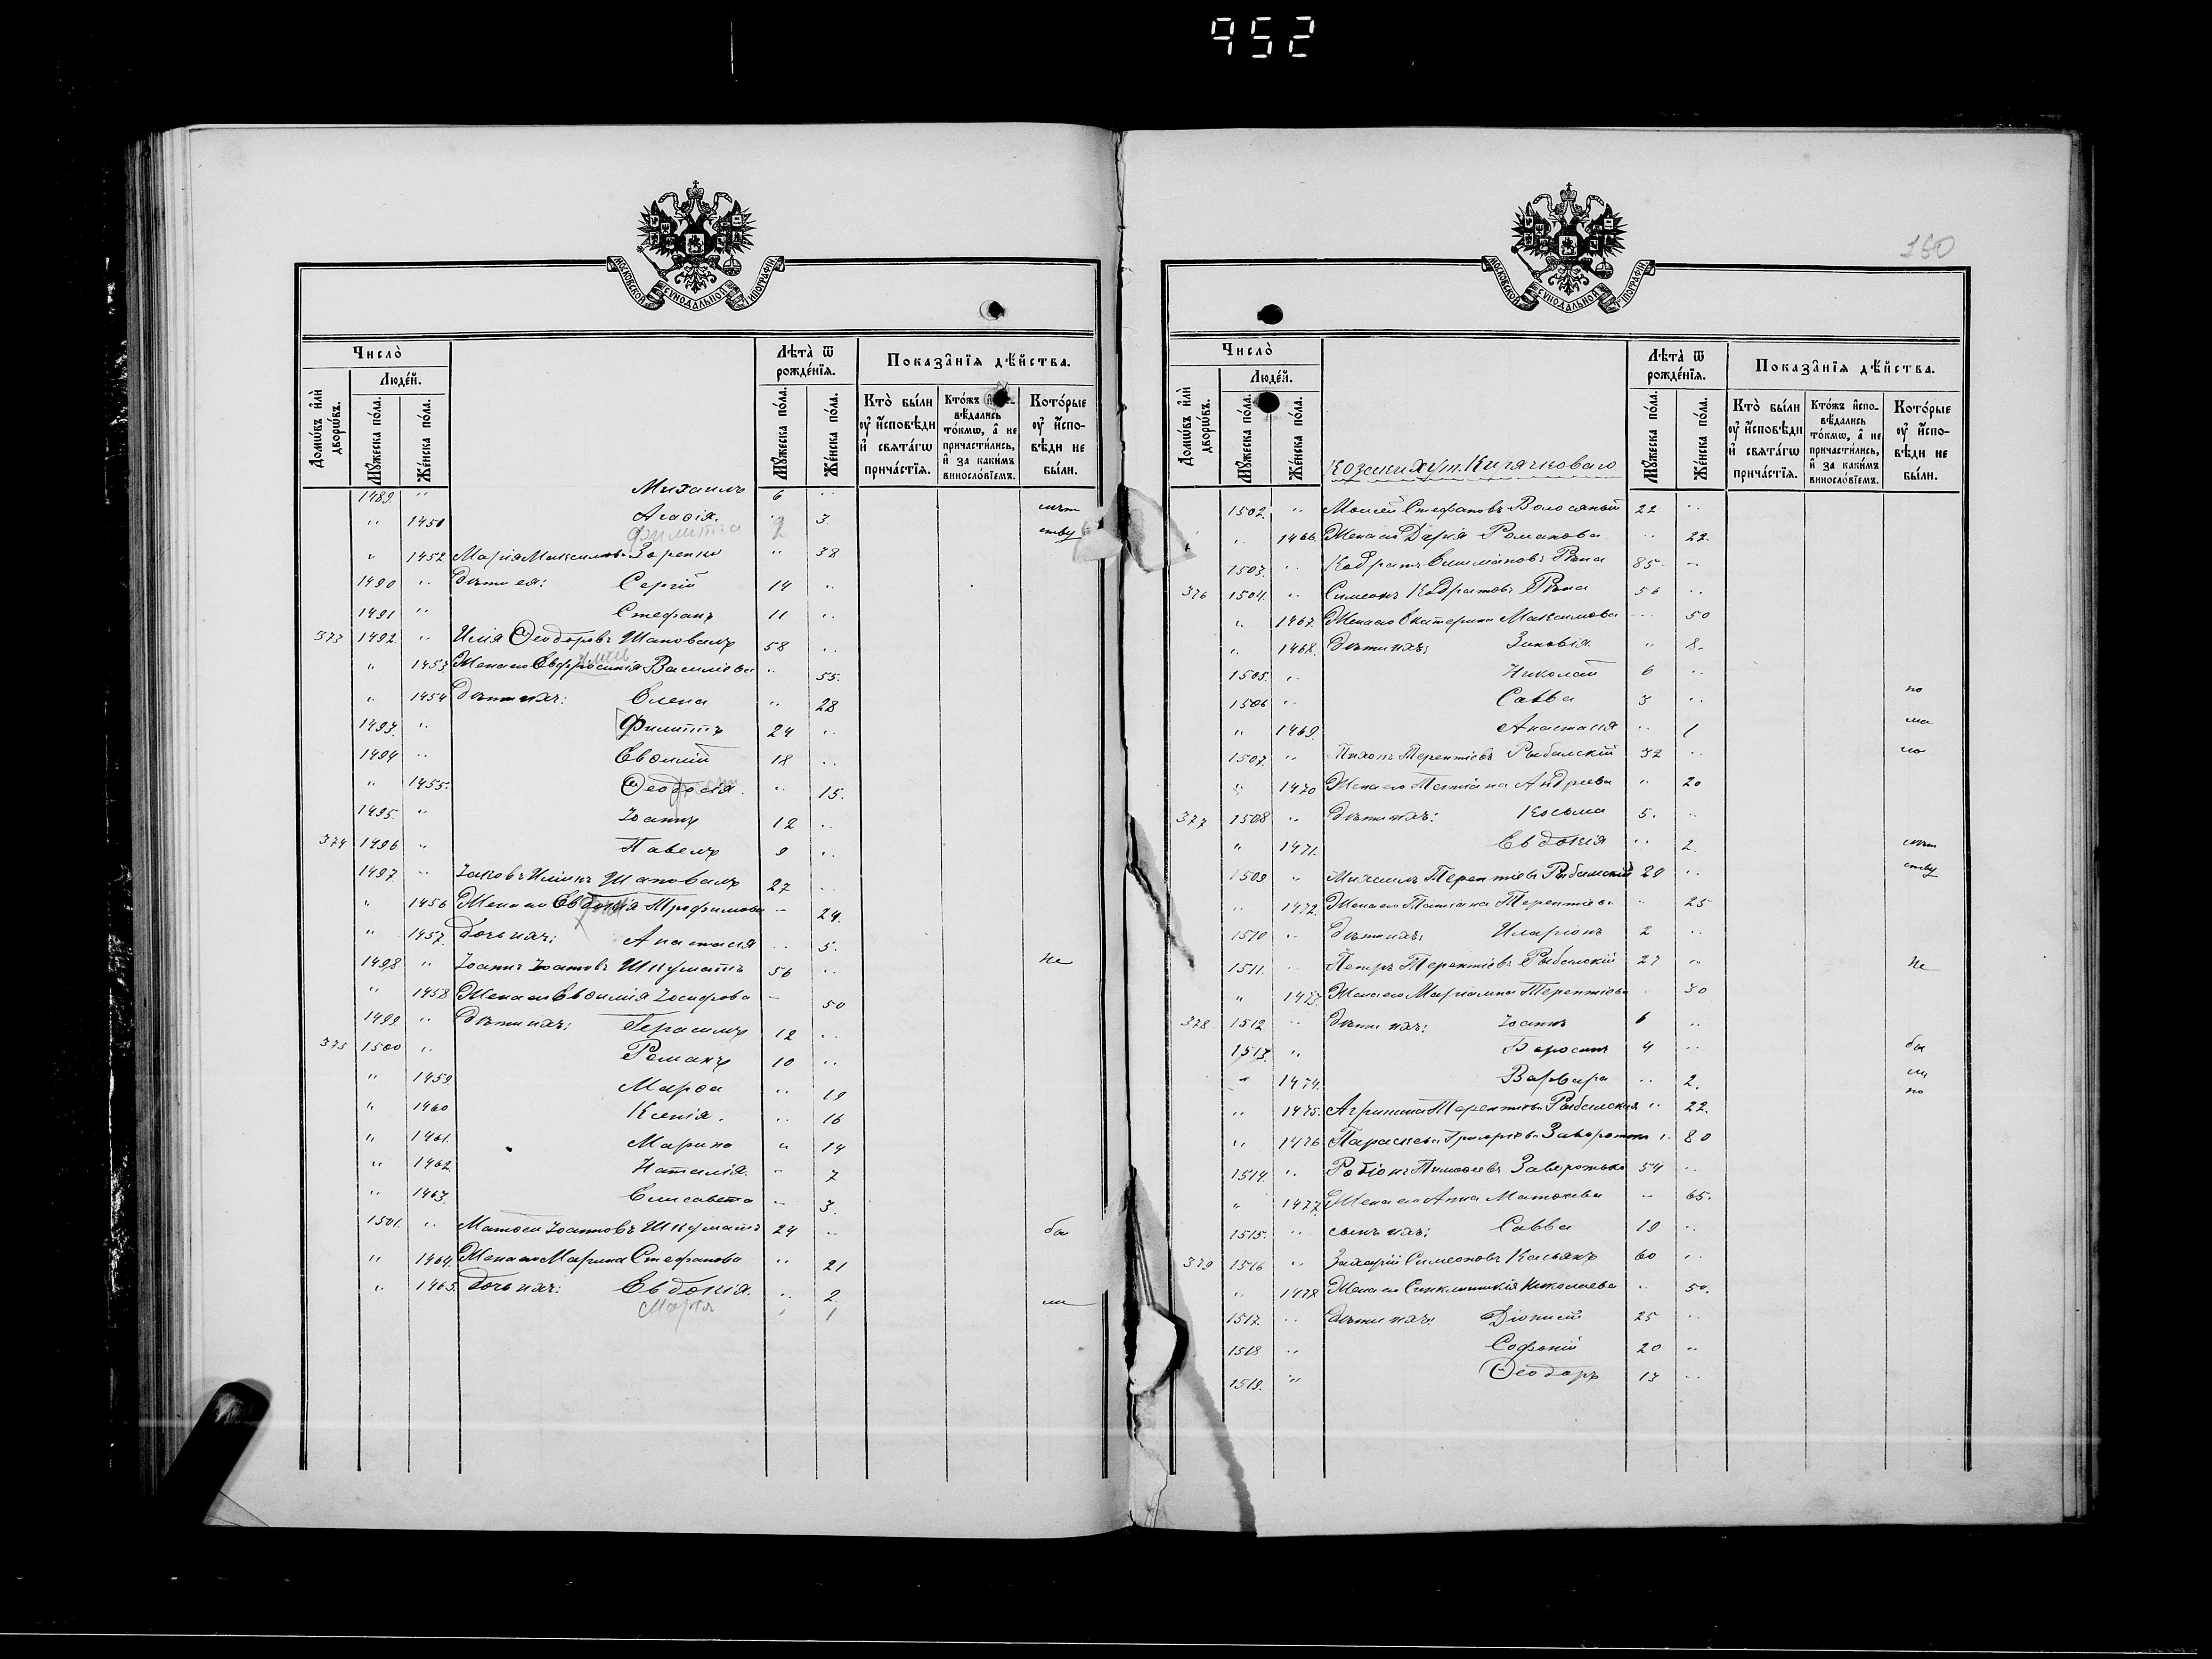 952
160
МОСКОВСКОЙ СѴНОДАЛЬНОЙ ТИПОГРАФІИ
Число̀
Людéй.
Домѡ́въ и҆лѝ дворѡ́въ.
Мꙋ́жеска по́ла.
Же́нска по́ла.
Лѣта̀ ѿ рожде́нїѧ.
Мꙋ́жеска по́ла.
Же́нска по́ла.
Показа̑нїѧ дѣ́йства.
Кто̀ бы́ли оу҆ и҆́сповѣди и҆ свѧта́гѡ прича́стїѧ.
вѣдались то́кмѡ, а҆ не причасти́лись, и҆ за каки́мъ винословїемъ.
Кото́рые оу҆ и҆́спо-вѣди не бы́ли.
1489. " Михаилъ 6 "
" 1451 Агафія. " 3.
Филиппа 2
" 1452 Марія Максимова Заренко " 38
1490 " Дѣти ея: Сергій 14 "
1491 " Стефанъ 11 "
373 1492. " Илія Ѳеодоровъ Шаповалъ 58 "
" 1453 Жена его Евфросинія Василіева " 55.
" 1454 Дѣти ихъ: Елена " 28
1493. " Филиппъ 24 "
1494 " Евѳимій 18 "
" 1455. Ѳеодосія. " 15.
1495. " Іоаннъ 12 "
374 1496 " Павелъ 9 "
1497. " Іаковъ Иліинъ Шаповалъ 27 "
" 1456 Жена его Евдокія Трофимова " 24.
" 1457. Дочь ихъ: Анастасія " 5.
1498 " Іоаннъ Іоанновъ Шкуматъ 56 "
" 1458 Жена его Евѳимія Іосифова " 50
1499 " Дѣти ихъ: Герасимъ 12 "
375 1500 " Романъ 10 "
" 1459 Марѳа " 19
" 1460 Ксенія. " 16
" 1461. Марина " 14
" 1462. Наталія. " 7
" 1463. Елисавета " 3.
1501. " Матѳей Іоанновъ Шкуматъ 24 "
" 1464. Жена его Марина Стефанова " 21
" 1465. Дочь ихъ: Евдокія. " 2.
Марія 1
отт
ству
не
бы
ли
МОСКОВСКОЙ СѴНОДАЛЬНОЙ ТѴПОГРАФІИ
Число̀
Людéй.
Домѡ́въ и҆лѝ дворѡ́въ.
Мꙋ́жеска по́ла.
Же́нска по́ла.
Лѣта̀ ѿ рожде́нїѧ.
Мꙋ́жеска по́ла.
Же́нска по́ла.
Показа̑нїѧ дѣ́йства.
Кто̀ бы́ли оу҆ и҆́сповѣди и҆ свѧта́гѡ прича́стїѧ.
Кто́жъ и҆спо-вѣдались то́кмѡ, а҆ не причасти́лись, и҆ за каки́мъ винословїемъ.
Кото́рые оу҆ и҆́спо-вѣди не бы́ли.
1502. " Моисей Стефановъ Волосяный 22 "
" 1466 Жена его Дарія Романова " 22.
1503. " Кодратъ Рѣпа 85 "
376 1504. " Симеонъ Кодратовъ Рѣпа 56 "
" 1467. Жена его Екатерина Максимова " 50
" 1468. Дѣти ихъ: Зиновія " 8.
1505. " Николай 6 "
1506 " Савва 3 "
" 1469. Анастасія " 1
1507. " Тихонъ Терентіевъ Рыбалскій 32 "
" 1470 Жена его Татіана Андреева " 20
377 1508 " Дѣти ихъ: Косьма 5. "
" 1471. Евдокія " 2.
1509 " Михаилъ Терентіевъ Рыбалскій 29 "
" 1472. Жена его Татіана Терентіева " 25
1510 " Дѣти ихъ: Иларіонъ 2 "
1511. " Петръ Терентіевъ Рыбалскій 27 "
" 1473. Жена его Маріамна Терентіева " 30
378 1512 " Дѣти ихъ: Іоаннъ 6 "
1513. " 4 "
" 1474. Варвара " 2.
" 1475. Агрипина Терентіева Рыбалская " 22.
" 1476 Параскева Григоріева " 80
1514. " Родіонъ Тимоѳеевъ Заворотько 54 "
" 1477. Жена его Анна Матѳеева " 65.
1515. " сынъ ихъ: Савва 19 "
379 1516 " Захарій Симеоновъ Касьянъ 60 "
" 1478 Жена его Синклитикія Николаева " 50.
1517. " Дѣти ихъ: Діонисій 25 "
1518 " Софроній 20 "
1519. " Ѳеодоръ 13 "
по
ма
ло
ству
не
бы
ли
но